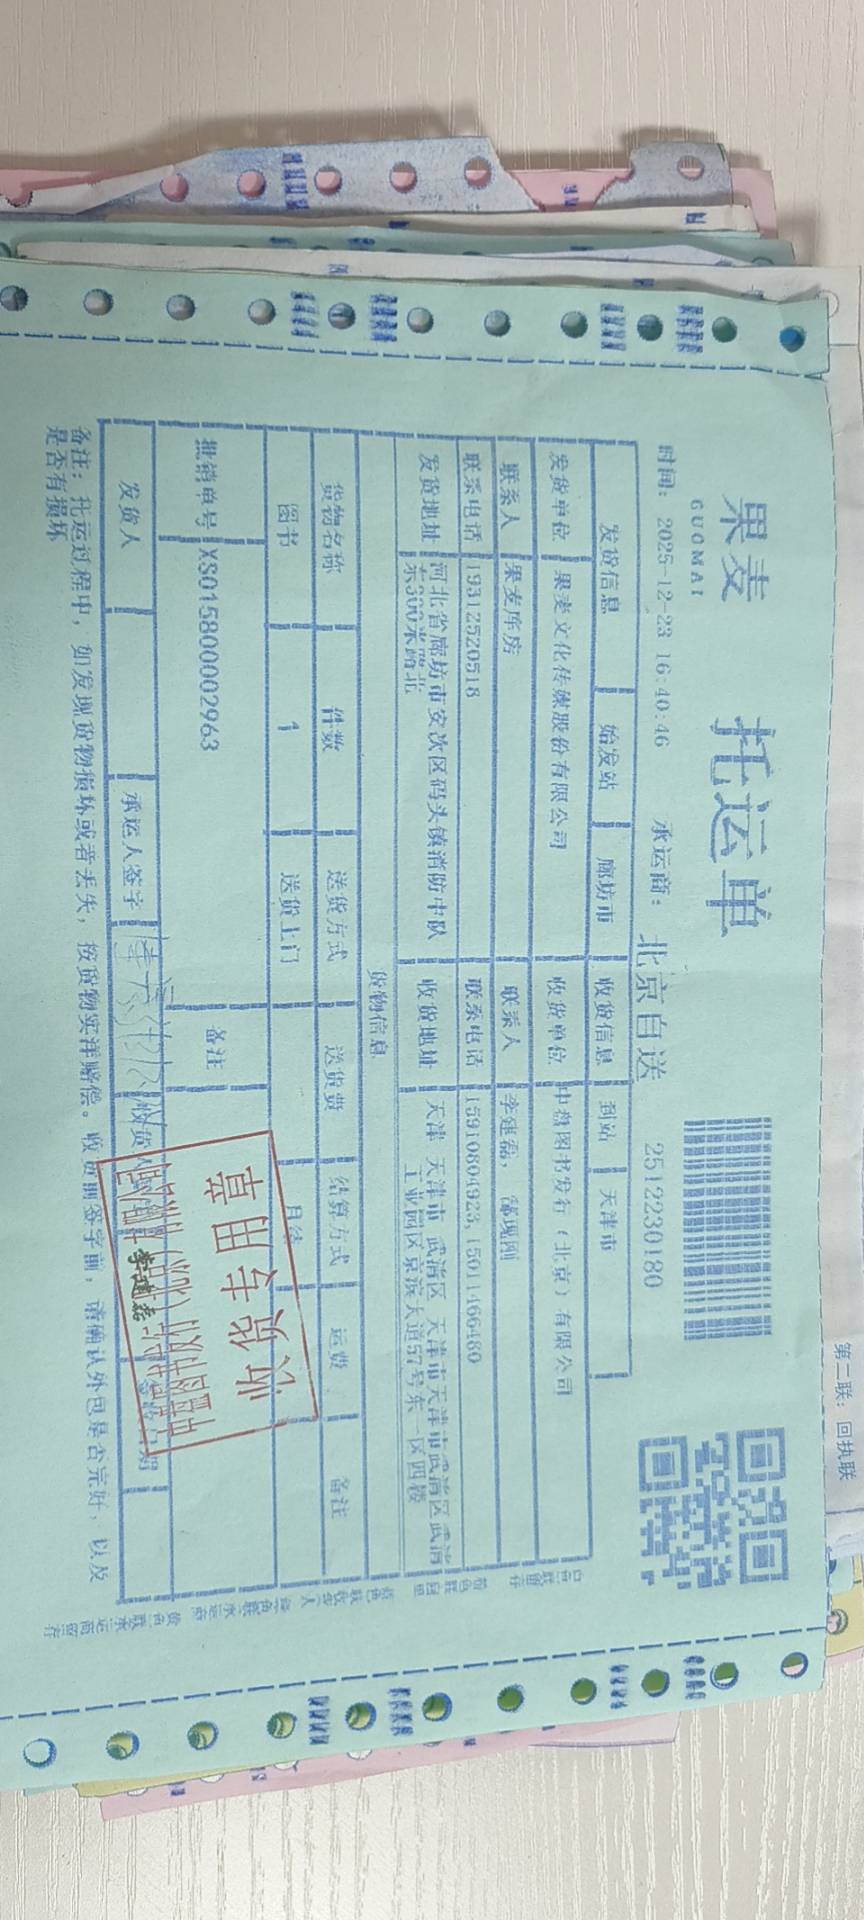 果麦
GUOMAI
托运单
2512230180
时间: 2025-12-23 16:40:46 承运商: 北京自送
发货信息 始发站 廊坊市 收货信息 到站 天津市
发货单位 果麦文化传媒股份有限公司 收货单位 中盘图书发行(北京)有限公司
联系人 果麦库房 联系人 李建磊,
联系电话 19312520518 联系电话 15910804923,15011466480
发货地址 河北省廊坊市安次区码头镇消防中队
东300米路北
收货地址 天津 天津市 武清区 天津市天津市武清区武清
工业园区泉旺大道57号东一区四楼
货物信息
货物名称 件数 送货方式 送货费 结算方式 运费 备注
图书 1 送货上门 月结
批销单号 XS01580002963 备注
发货人 承运人签字 收货人
备注: 托运过程中, 如发现货物损坏或者丢失, 按货物实洋赔偿。收货前签字前, 请确认外包是否完好, 以及
是否有损坏
中盘图书发行(北京)有限公司
收货专用章
李建磊
第二联: 回执联